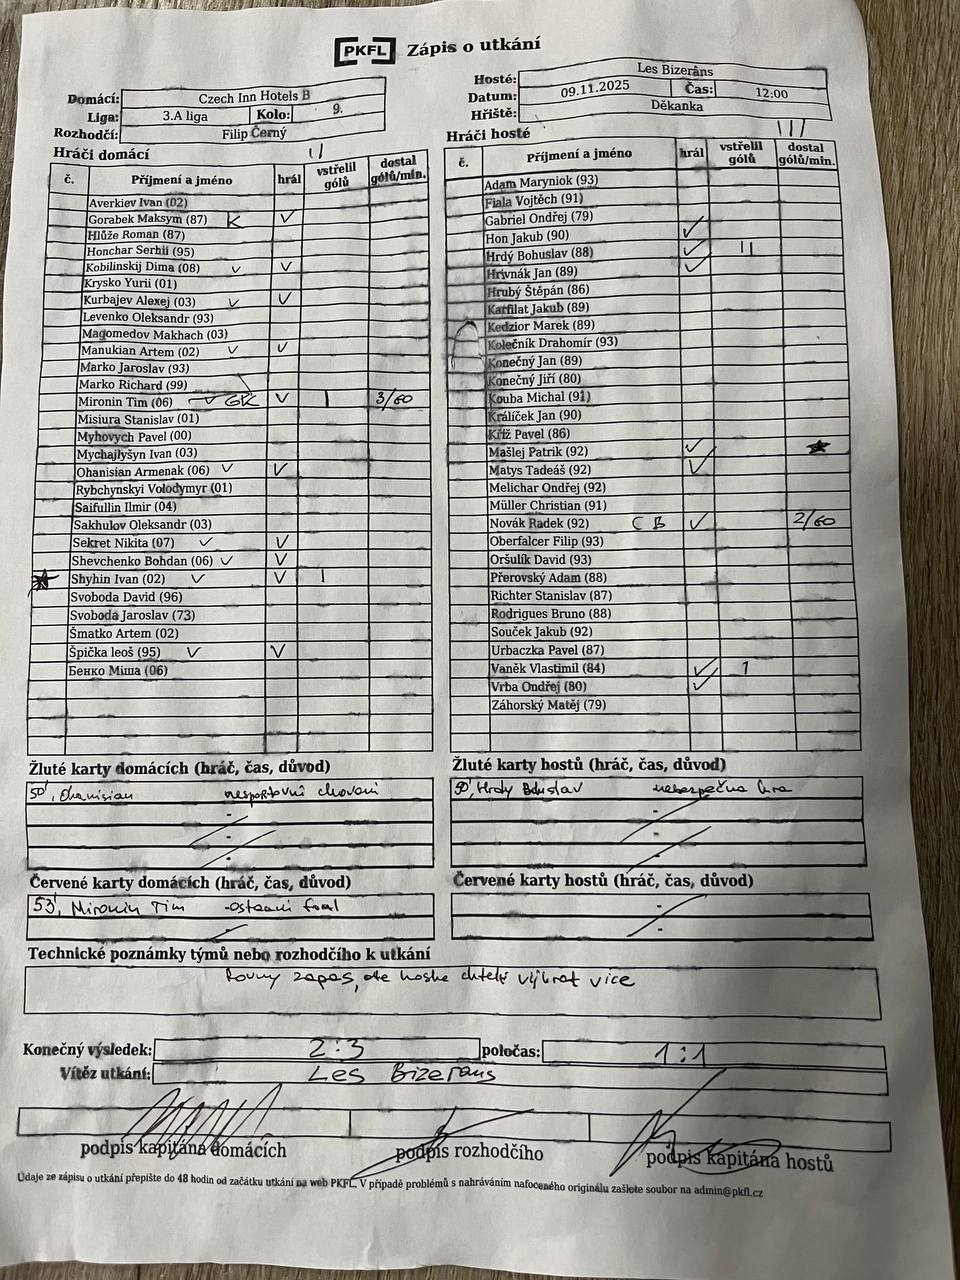 PKFL Zápis o utkání
Domácí: Czech Inn Hotels B
Liga: 3.A liga Kolo: 9.
Rozhodčí: Filip Černý
Hosté: Les Bizerâns
Datum: 09.11.2025 Čas: 12:00
Hřiště: Děkanka
Hráči domácí
č. Příjmení a jméno hrál vstřelil gólů dostal gólů/min.
Averkiev Ivan (02)
Gorabek Maksym (87) K ✓
Hlůže Roman (87)
Honchar Serhii (95)
Kobilinskij Dima (08) ✓ ✓
Krysko Yurii (01)
Kurbajev Alexej (03) ✓ ✓
Levenko Oleksandr (93)
Magomedov Makhach (03)
Manukian Artem (02) ✓ ✓
Marko Jaroslav (93)
Marko Richard (99)
Mironin Tim (06) ✓ GK ✓ I 3/60
Misiura Stanislav (01)
Myhovych Pavel (00)
Mychajlyšyn Ivan (03)
Ohanisian Armenak (06) ✓ ✓
Rybchynskyi Volodymyr (01)
Saifullin Ilmir (04)
Sakhulov Oleksandr (03)
Sekret Nikita (07) ✓ ✓
Shevchenko Bohdan (06) ✓ ✓
Shyhin Ivan (02) ✓ ✓ I
Svoboda David (96)
Svoboda Jaroslav (73)
Šmatko Artem (02)
Špička leoš (95) ✓ ✓
Бенко Міша (06)
Hráči hosté
č. Příjmení a jméno hrál vstřelil gólů dostal gólů/min.
Adam Maryniok (93)
Fiala Vojtěch (91)
Gabriel Ondřej (79)
Hon Jakub (90) ✓
Hrdý Bohuslav (88) ✓ II
Hrivnák Jan (89) ✓
Hrubý Štěpán (86)
Karfilat Jakub (89)
Kedzior Marek (89)
Kolečník Drahomír (93)
Konečný Jan (89)
Konečný Jiří (80)
Kouba Michal (91)
Králíček Jan (90)
Kříž Pavel (86)
Mašlej Patrik (92) ✓ ★
Matys Tadeáš (92) ✓
Melichar Ondřej (92)
Müller Christian (91)
Novák Radek (92) C B ✓ 2/60
Oberfalcer Filip (93)
Oršulík David (93)
Přerovský Adam (88)
Richter Stanislav (87)
Rodrigues Bruno (88)
Souček Jakub (92)
Urbaczka Pavel (87)
Vaněk Vlastimil (84) ✓ 1
Vrba Ondřej (80) ✓
Záhorský Matěj (79)
Žluté karty domácích (hráč, čas, důvod)
50', Ohanisian nesportovní chování
Žluté karty hostů (hráč, čas, důvod)
Hrdy Bohuslav nebezpečna hra
Červené karty domácích (hráč, čas, důvod)
53', Mironin Tim - ostatní foul
Červené karty hostů (hráč, čas, důvod)
Technické poznámky týmů nebo rozhodčího k utkání
Rovny zapas, ale hoste chteli vyhrat vice
Konečný výsledek: 2:3 poločas: 1:1
Vítěz utkání: Les Bizerans
podpis kapitána domácích podpis rozhodčího podpis kapitána hostů
Údaje ze zápisu o utkání přepište do 48 hodin od začátku utkání na web PKFL. V případě problémů s nahráváním nafoceného originálu zašlete soubor na admin@pkfl.cz